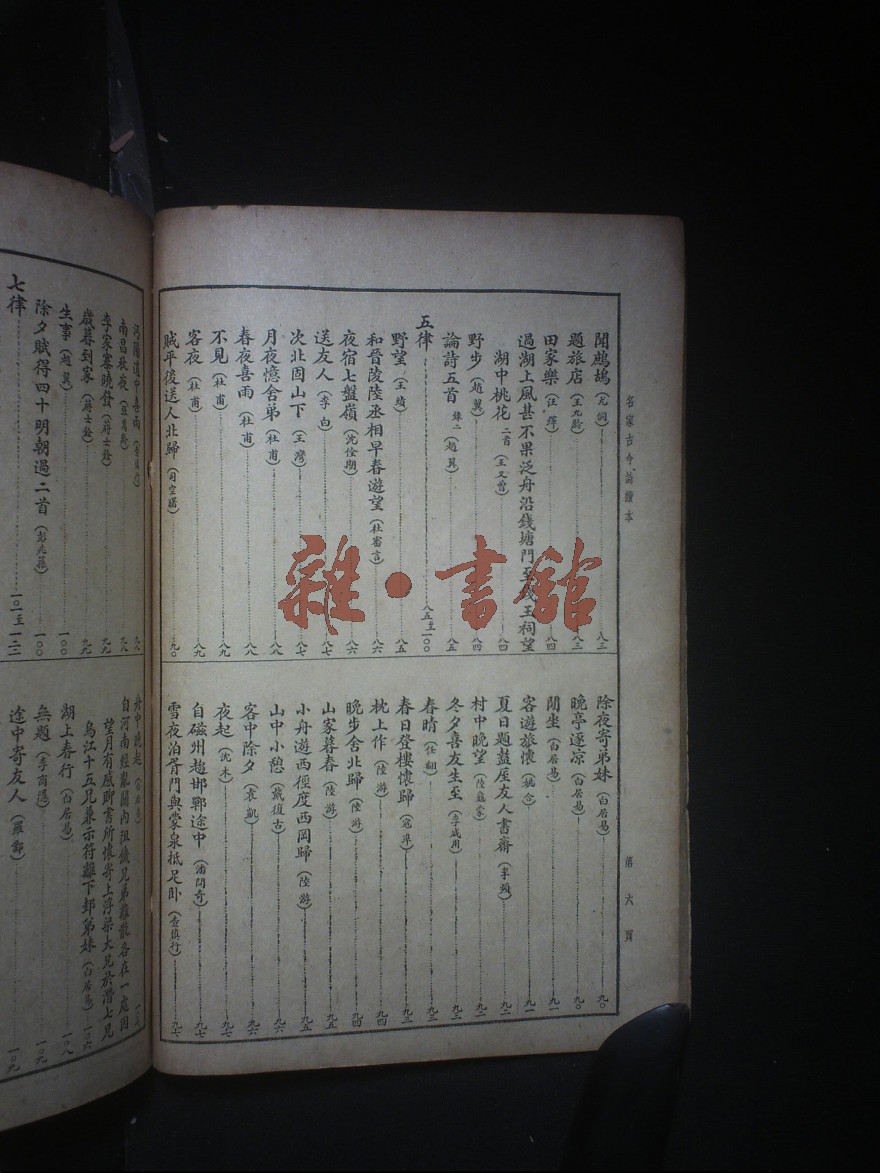 名家古今詩讀本
第六頁
聞鷓鴣(尤侗)八三
題旅店(王九齡)八三
田家樂(汪繹)八四
過湖上風甚不果泛舟沿錢塘門至戌王祠望
湖中桃花二首(王又曾)八四
野步(趙翼)八四
論詩五首錄二(趙翼)八五
五律八五至一〇〇
野望(王績)八五
和晉陵陸丞相早春遊望(杜審言)八六
夜宿七盤嶺(沈佺期)八六
送友人(李白)八七
次北固山下(王灣)八七
月夜憶舍弟(杜甫)八八
春夜喜雨(杜甫)八八
不見(杜甫)八九
客夜(杜甫)八九
賊平後送人北歸(司空曙)九〇
除夜寄弟妹(白居易)九〇
晚亭逐凉(白居易)九〇
閒坐(白居易)九一
客遊旅懷(姚合)九一
夏日題盩厔友人書齋(李頻)九二
村中晚望(陸龜蒙)九二
冬夕喜友生至(李咸用)九二
春晴(任翻)九三
春日登樓懷歸(寇準)九三
枕上作(陸游)九四
晚步舍北歸(陸游)九四
山家暮春(陸游)九五
小舟遊西徑度西岡歸(陸游)九五
山中小憩(戴復古)九六
客中除夕(袁凱)九六
夜起(沈木)九七
自磁州趨邯鄲途中(潘問奇)九七
雪夜泊胥門與蒙泉抵足臥(查慎行)九七
沔陽道中喜雨九八
南昌秋夜九八
李家寨曉發(蔣士銓)九九
歲暮到家(蔣士銓)九九
生事(趙翼)一〇〇
除夕賦得四十明朝過二首(彭兆蓀)一〇〇
七律一〇一至一二二
舟中晚起(白居易)
自河南經亂關內阻饑兄弟離散各在一處因
望月有感聊書所懷寄上浮梁大兄於潛七兄
烏江十五兄兼示符離下邽弟妹(白居易)
湖上春行(白居易)一〇八
無題(李商隱)一〇九
途中寄友人(羅鄴)一〇九
雜·書館